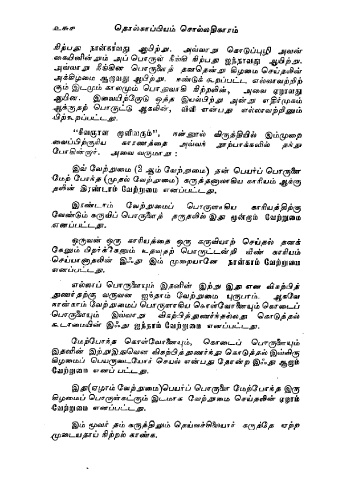 தொல்காப்பியம் சொல்லதிகாரம்
நிற்பது நான்காவது ஆயிற்று. அவ்வாறு கொடுப்புழி அவன்
கையினின்றும் அப் பொருள் நீங்கி நிற்பது ஐந்தாவது ஆயிற்று.
அவ்வாறு நீங்கின பொருளைத் தனதென்று கிழமை செய்தலின்
அக்கிழமை ஆறாவது ஆயிற்று. ஈண்டுக் கூறப்பட்ட எல்லாவற்றிற்
கும் இடமும் காலமும் பொதுவாகி நிற்றலின், அவை ஏழாவது
ஆயின. இவையிற்றோடு ஒத்த இயல்பிற்று அன்று எதிர்முகம்
ஆக்குதற் பொருட்டு ஆகலின், விளி என்பது எல்லாவற்றினும்
பிற்கூறப்பட்டது.
“சிவஞான முனிவரும்”, நன்னூல் விருத்தியில் இம்முறை
வைப்பிற்குரிய காரணத்தை அவ்வா நூற்பாக்களில் தந்து
போகின்றார். அவை வருமாறு :
இவ் வேற்றுமை (2 ஆம் வேற்றுமை) தன் பெயர்ப் பொருளை
மேற் போந்த (முதல் வேற்றுமை) கருத்தனாகிய காரியம் ஆக்கு
தலின் இரண்டாம் வேற்றுமை எனப்பட்டது.
இரண்டாம் வேற்றுமைப் பொருளாகிய காரியத்திற்கு
வேண்டும் கருவிப் பொருளைத் தருதலின் இது மூன்றாம் வேற்றுமை
எனப்பட்டது.
ஒருவன் ஒரு காரியத்தை ஒரு கருவியாற் செய்தல் தனக்
கேனும் பிறர்க்கேனும் உதவுதற் பொருட்டன்றி வீண் காரியம்
செய்யானாதலின் இஃது இம் முறையானே நான்காம் வேற்றுமை
எனப்பட்டது.
எல்லாப் பொருளையும் இதனின் இற்று இது என விகற்பித்
துணர்தற்கு வருவன ஐந்தாம் வேற்றுமை யுருபாம். ஆகவே
நான்காம் வேற்றுமைப் பொருளாகிய கொள்வோனையும் கொடைப்
பொருளையும் இவ்வாறு விகற்பித்துணர்ந்தல்லது கொடுத்தல்
கூடாமையின் இஃது ஐந்தாம் வேற்றுமை எனப்பட்டது.
மேற்போந்த கொள்வோனையும், கொடைப் பொருளையும்
இதனின் இற்றுஇதுவென விகற்பித்துணர்ந்து கொடுத்தல் இவ்விரு
கிழமைப் பெயருடையோர் செயல் என்பது தோன்ற இஃது ஆறாம்
வேற்றுமை எனப் பட்டது.
இது(ஏழாம் வேற்றுமை)பெயர்ப் பொருளை மேற்போந்த இரு
கிழமைப் பொருள்கட்கும் இடமாக வேற்றுமை செய்தலின் ஏழாம்
வேற்றுமை எனப்பட்டது.
இம் மூவர் தம் கருத்தினும் தெய்வச்சிலையார் கருத்தே ஏற்ற
முடையதாய் நிற்றல் காண்க.